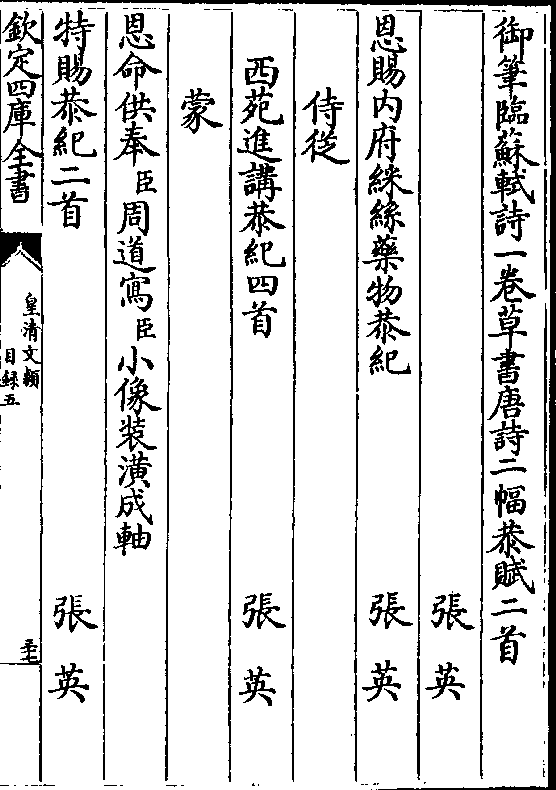 御筆臨蘇軾詩一卷草書唐詩二幅恭賦二首
張英
恩賜内府綵絲藥物恭紀
張英
侍從
西苑進講恭紀四首
張英
蒙
恩命供奉臣周道寫臣小像装潢成軸
特賜恭紀二首
張英
欽定四庫全書
皇清文穎
目録五